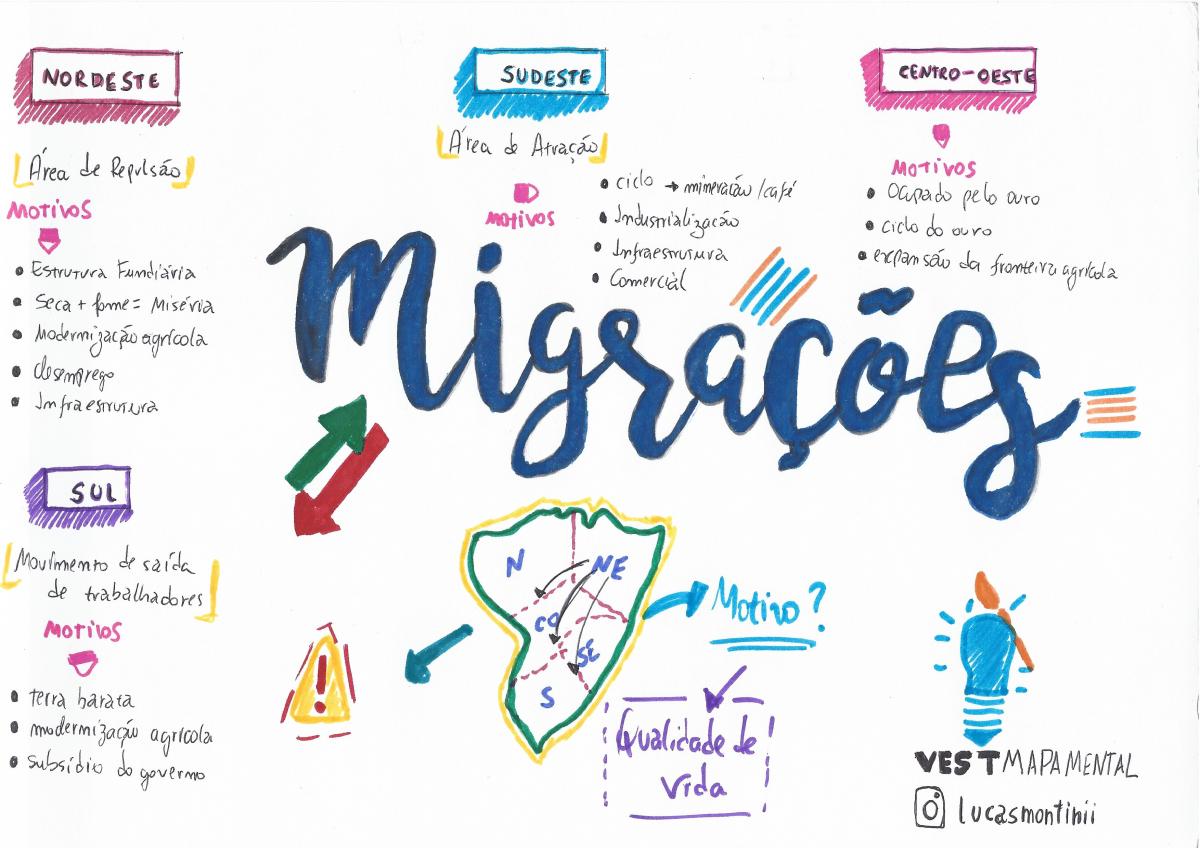 NORDESTE
Área de Repulsão
MOTIVOS
• Estrutura Fundiária
• Seca + fome = Miséria
• Modernização agrícola
• desemprego
• Infraestrutura
SUDESTE
Área de Atração
MOTIVOS
• ciclo → mineração/café
• Industrialização
• Infraestrutura
• Comercial
CENTRO-OESTE
MOTIVOS
• Ocupado pelo ouro
• ciclo do ouro
• expansão da fronteira agrícola
Migrações
SUL
Movimento de saída
de trabalhadores
MOTIVOS
• terra barata
• modernização agrícola
• subsídio do governo
!
N NE
CO
SE
S
Motivo?
Qualidade de
vida
VESTMAPAMENTAL
lucasmontinii